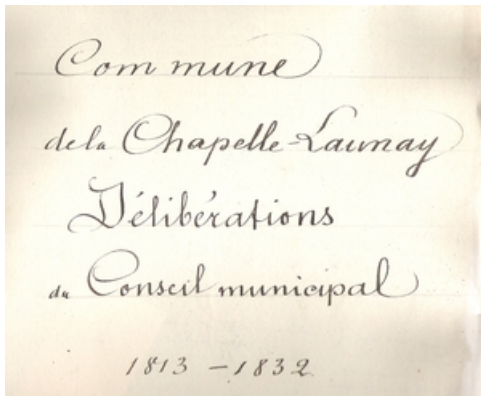 Commune
de la Chapelle-Launay
Délibérations
du Conseil municipal
1813 - 1832